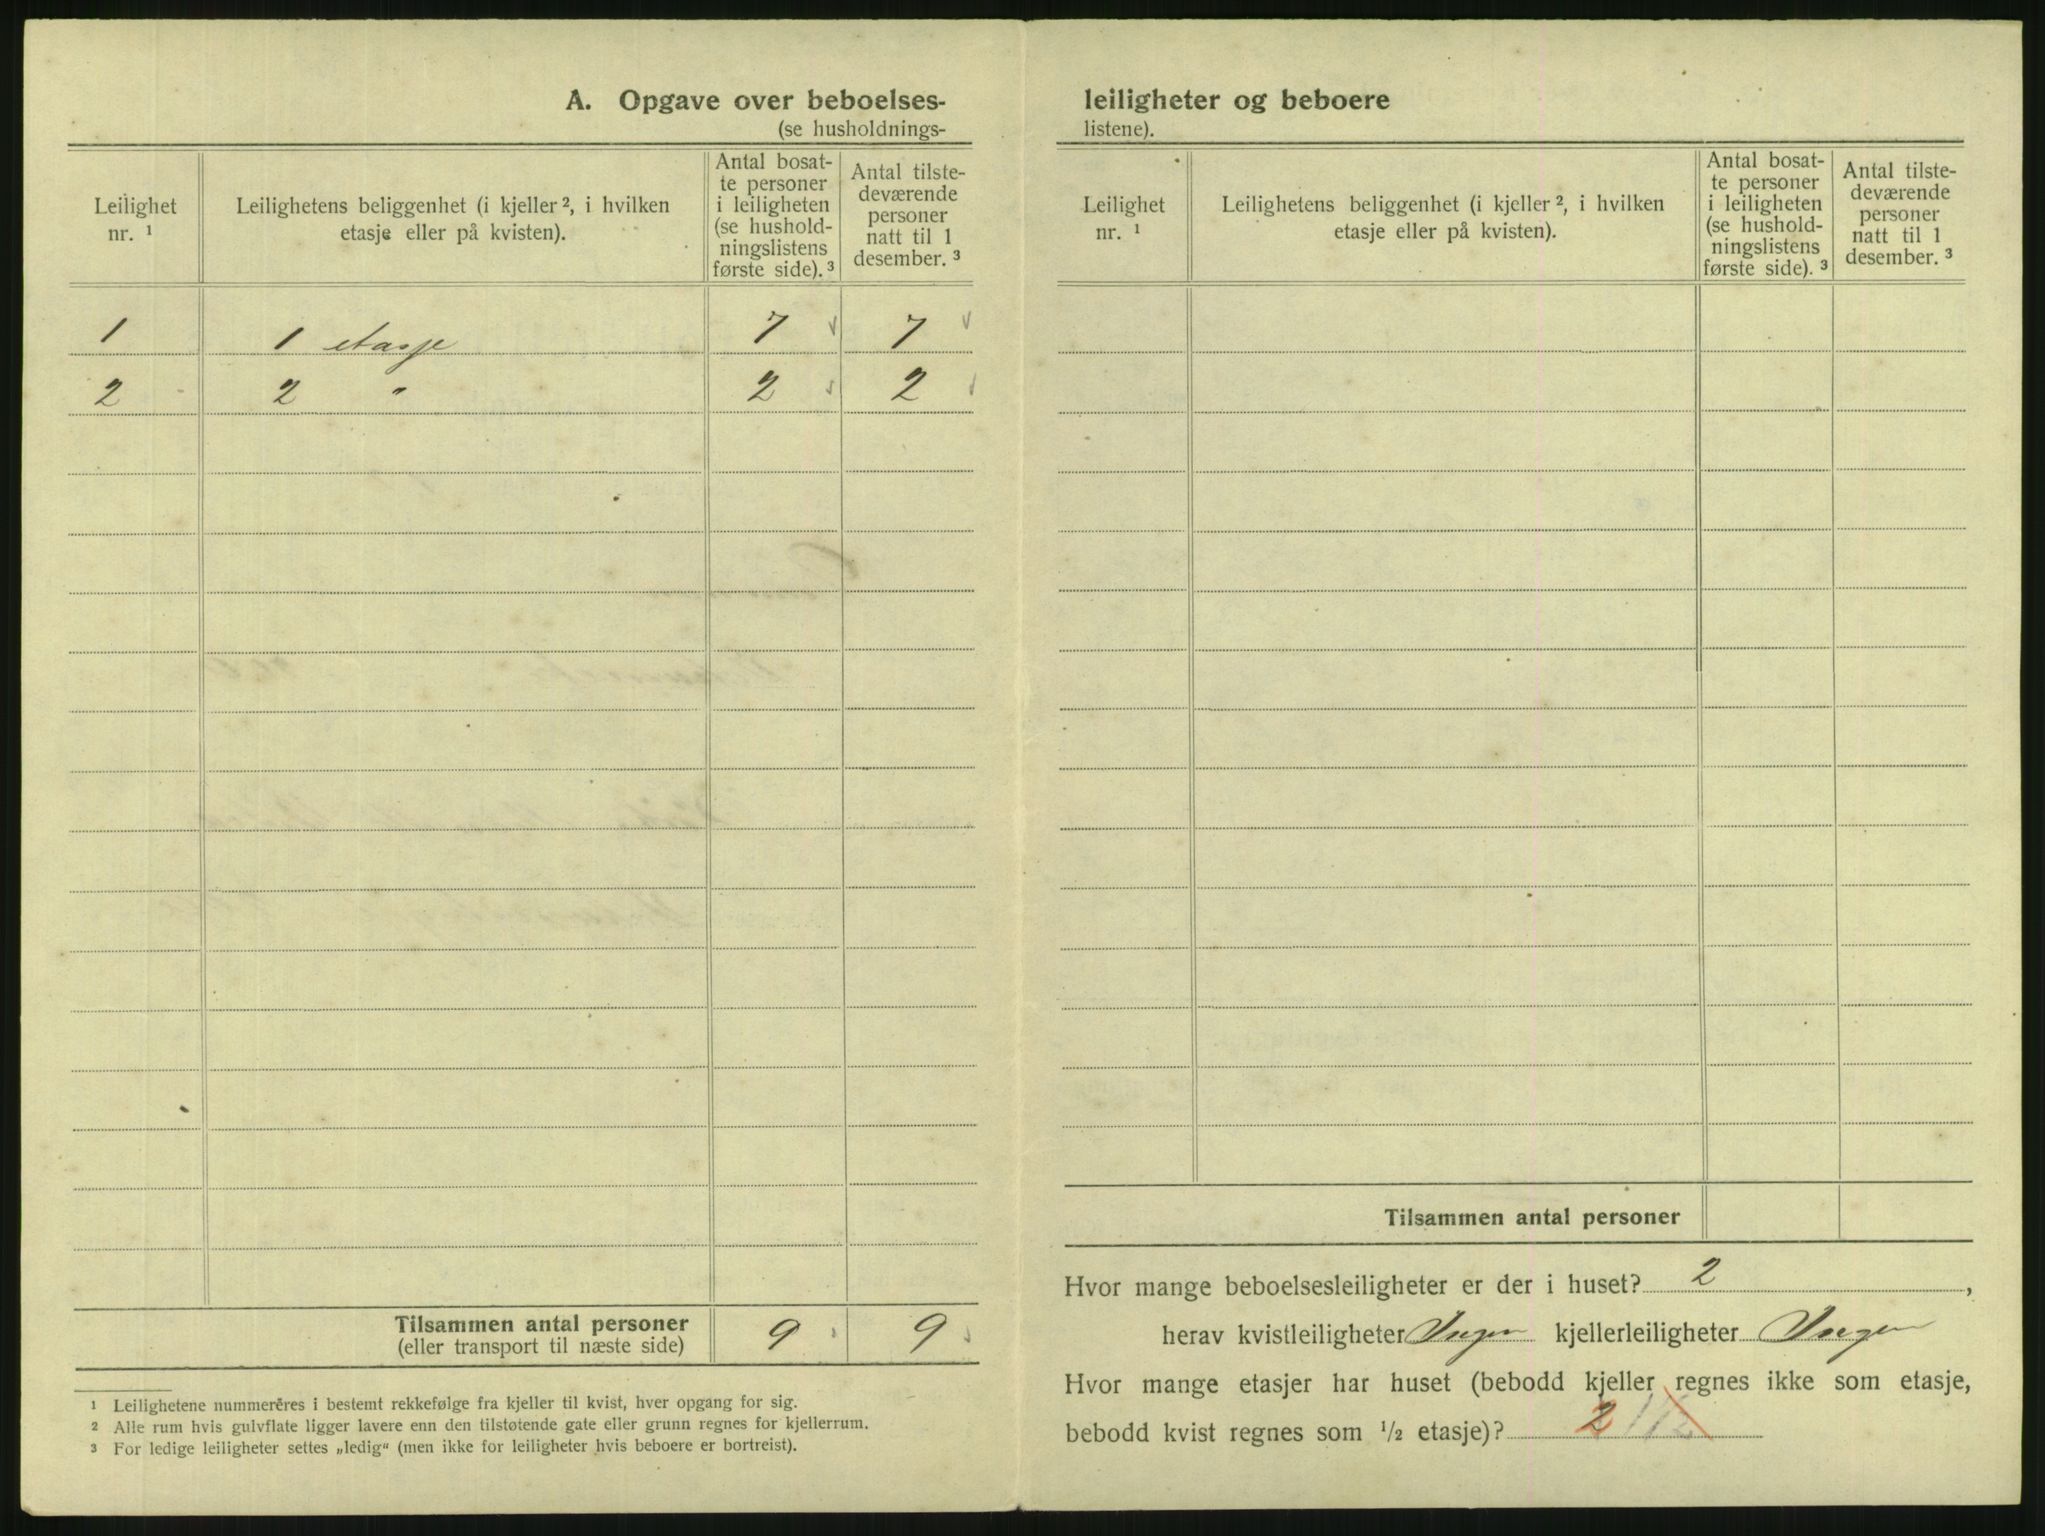 A. Opgave over beboelses-
(se husholdnings-
Leilighet
nr. ¹
Leilighetens beliggenhet (i kjeller ², i hvilken
etasje eller på kvisten).
Antal bosat-
te personer
i leiligheten
(se hushold-
ningslistens
første side). ³
Antal tilste-
deværende
personer
natt til 1
desember. ³
1 1 etasje 7 7
2 2 " 2 2
Tilsammen antal personer 9 9
(eller transport til næste side)
¹ Leilighetene nummereres i bestemt rekkefølge fra kjeller til kvist, hver opgang for sig.
² Alle rum hvis gulvflate ligger lavere enn den tilstøtende gate eller grunn regnes for kjellerrum.
³ For ledige leiligheter settes „ledig“ (men ikke for leiligheter hvis beboere er bortreist).
leiligheter og beboere
listene).
Leilighet
nr. ¹
Leilighetens beliggenhet (i kjeller ², i hvilken
etasje eller på kvisten).
Antal bosat-
te personer
i leiligheten
(se hushold-
ningslistens
første side). ³
Antal tilste-
deværende
personer
natt til 1
desember. ³
Tilsammen antal personer
Hvor mange beboelsesleiligheter er der i huset? 2 ,
herav kvistleiligheter Ingen kjellerleiligheter Ingen
Hvor mange etasjer har huset (bebodd kjeller regnes ikke som etasje,
bebodd kvist regnes som ½ etasje)? 2 1/2